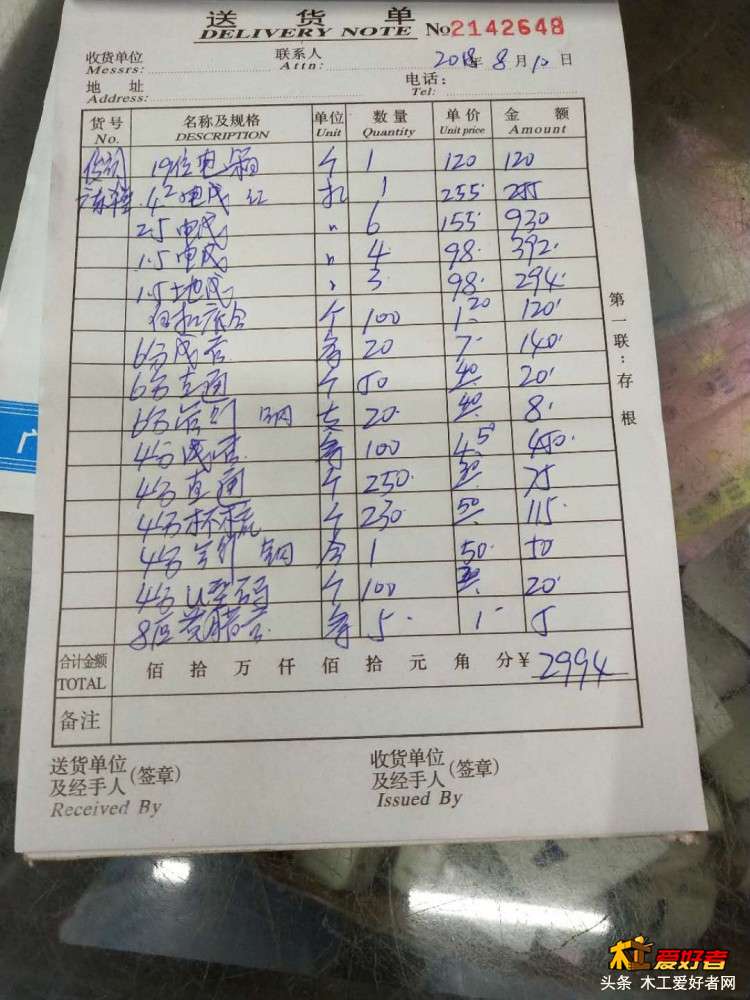 送 货 单
DELIVERY NOTE №2142648
收货单位 联系人 2018年 8 月 10 日
Messrs: Attn:
地 址 电话:
Address: Tel:
货号 名称及规格 单位 数量 单价 金 额
No. DESCRIPTION Unit Quantity Unit price Amount
19位电箱 个 1 120 120
4² 电线 红 扎 1 255 255
2.5 电线 " 6 155 930
1.5 电线 " 4 98 392
1.5 地线 " 3 98 294
底合 个 100 1.20 120
6分线管 20 7 140
6分直通 个 50 40 20
6分 20 40 8
4分线管 100 4.5 450
4分直通 个 250 30 75
4分杯梳 个 230 50 115
4分 1 50 50
4分U型码 个 100 20
8厘黄腊管 5 1 5
合计金额
TOTAL 佰 拾 万 仟 佰 拾 元 角 分¥ 2994
备注
第一联:存根
送货单位
及经手人(签章)
Received By
收货单位
及经手人(签章)
Issued By
木工爱好者
头条 木工爱好者网